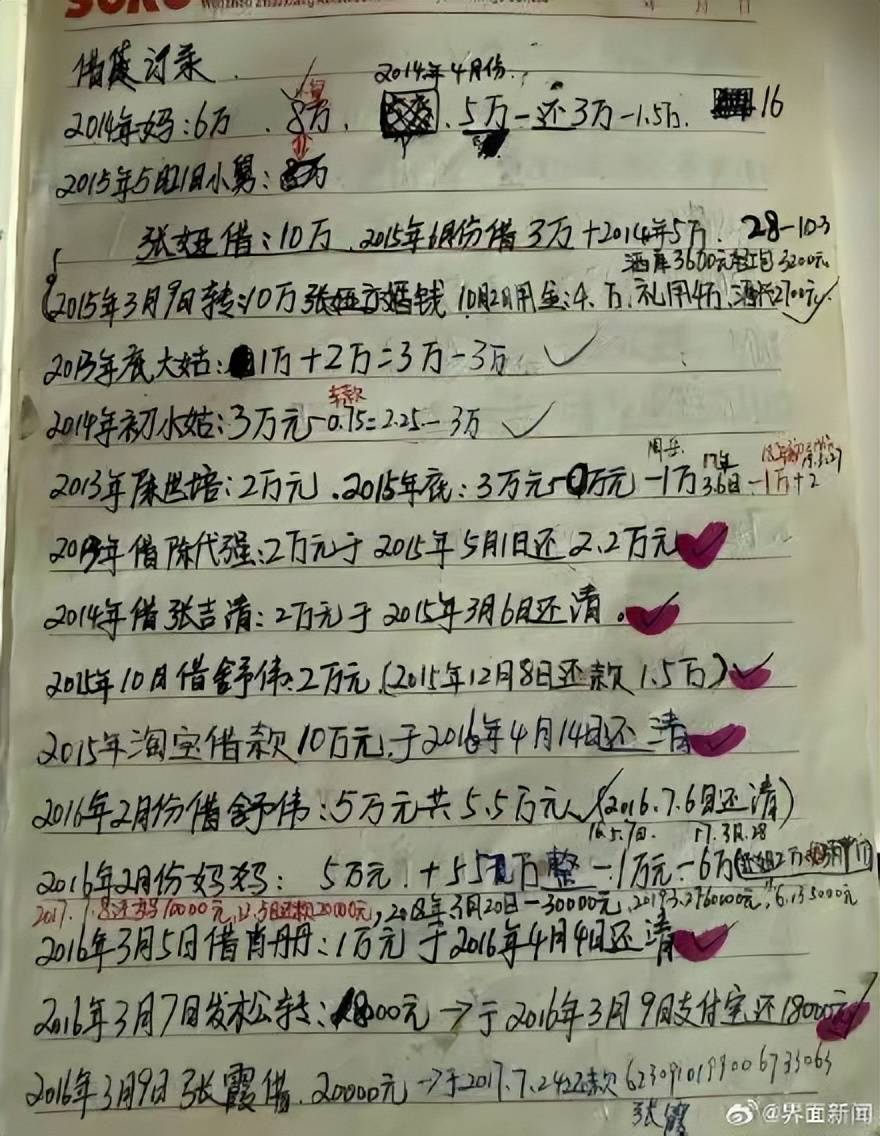 SURE
年 月 日
借款记录
2014年4月份
2014年妈:6万、8万、5万-还3万-1.5万、16
2015年5月21日小舅:8万
张娅借:10万、2015年6月份借3万+2014年5万. 28-10=3
酒席3600元红包3200元
2015年3月9日转:10万张娅结婚钱 10月2日用金:4.万、礼用4万、酒2700元
2013年底大姑:1万+2万=3万-3万
车款
2014年初小姑:3万元-0.75=2.25-3万
17年
2013年陈世培:2万元、2015年底:3万元-万元-1万3.6日-1万+2
2013年借陈代强:2万元于2015年5月1日还2.2万元
2014年借张吉清:2万元于2015年3月6日还清。
2015年10月借舒伟:2万元(2015年12月8日还款1.5万)
2015年淘宝借款10万元,于2016年4月14日还清
2016年2月份借舒伟:5万元共5.5万元(2016.7.6日还清)
16.5.7日. 17.3月.28
2016年2月份妈妈: 5万元!+5万整-1万元-6万
2017.7.8还妈10000元,12.5日还款20000元,2018年3月20日-30000元,2019.3.2760000元,6.135000元
2016年3月5日借肖丹丹:1万元于2016年4月4日还清
2016年3月7日发松公转:18000元→于2016年3月9日支付宝还18000元
2016年3月9日张霞借.20000元→于2017.7.24还款6230910199006733063
张霞
@界面新闻